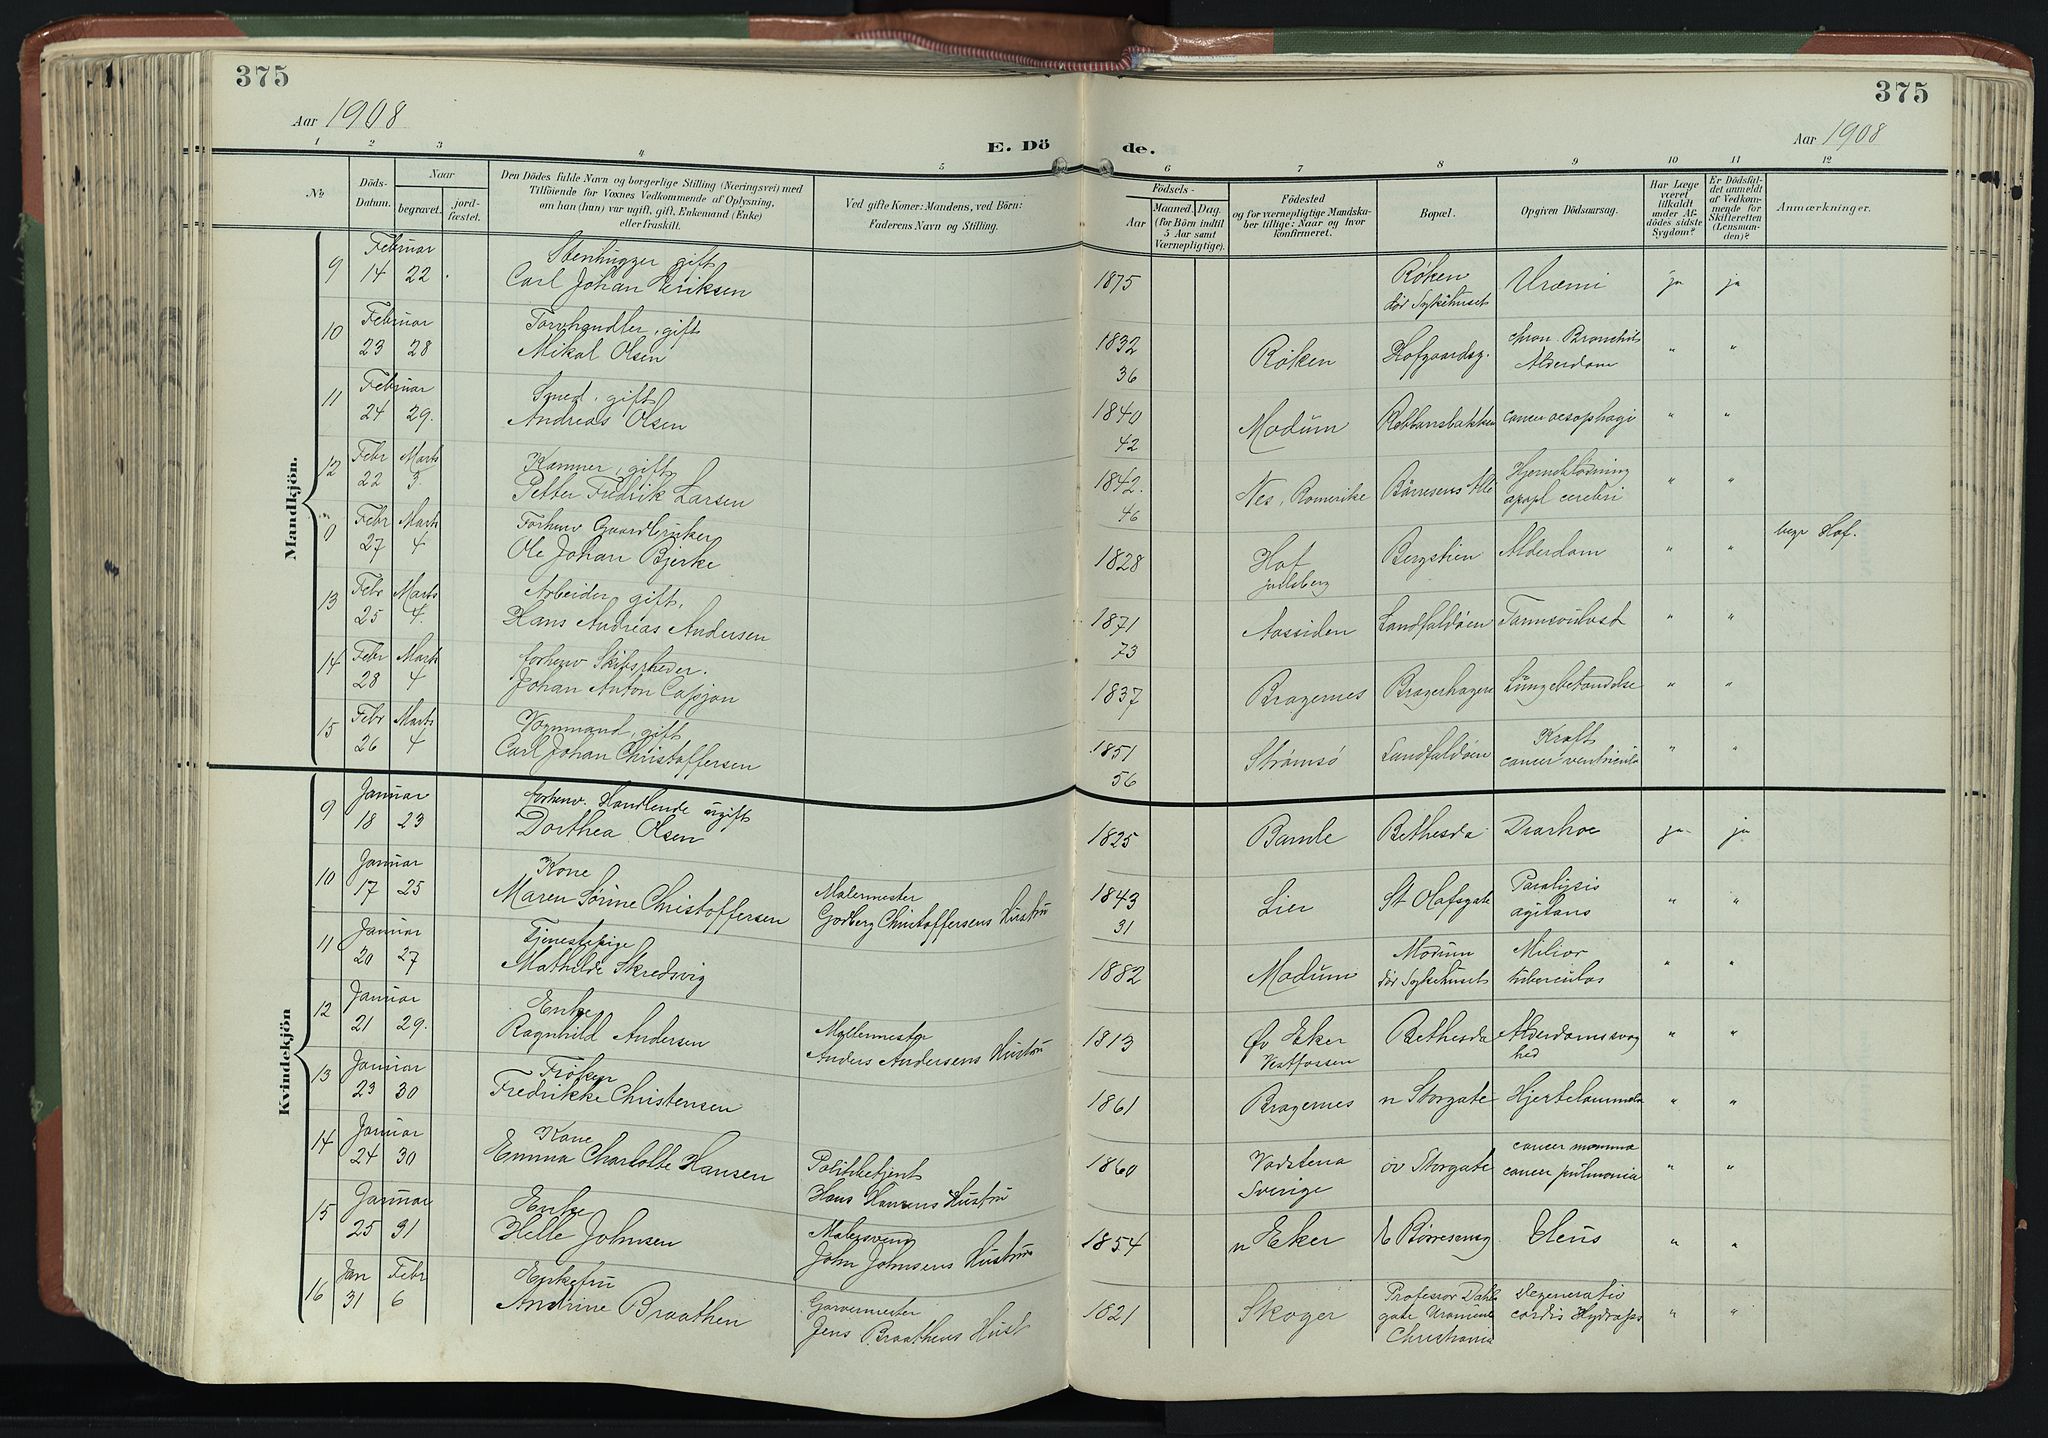 375
375
Aar 1908
Aar 1908
E. Dö de.
1 2 3 4 5 6 7 8 9 10 11 12
No.
Döds-Datum.
Naar
begravet.
jord-fæstet.
Den Dödes fulde Navn og borgerlige Stilling (Næringsvei) med
Tilföiende for Voxnes Vedkommende af Oplysning,
om han (hun) var ugift, gift, Enkemand (Enke)
eller fraskilt.
Ved gifte Koner: Mandens, ved Börn:
Faderens Navn og Stilling.
Födsels-
Aar
Maaned. Dag.
(for Börn indtil
5 Aar samt
Værnepligtige).
Födested
og for værnepligtige Mandska-
ber tillige: Naar og hvor
konfirmeret.
Bopæl.
Opgiven Dödsaarsag.
Har Læge
været
tilkaldt
under Af-
dödes sidste
Sygdom?
Er Dödsfal-
det anmeldt
af Vedkom-
mende for
Skifteretten
(Lensman-
den)?
Anmærkninger.
Mandkjön.
9 Februar 14 22 Stenhugger gift
Carl Johan Eriksen 1875 Røken
dør Sykehuset Uræmi ja ja
10 Februar 23 28 Torvhandler, gift
Mikal Olsen 1832
36 Røken Hofgaardsg. chron. Bronchit
Alderdom " "
11 Februar 24 29. Smed, gift
Andreas Olsen 1840
42 Modum Rebbansbakken cancer oesophagi " "
12 Febr 22 Marts 3. gift
Petter Fredrik Larsen 1842.
46 Nes, Romerike Børresens Alle Hjerneblødning
apopl cerebri " "
0 Febr 27 Marts 4 Forhenv Gaardbruker
Ole Johan Bjerke 1828 Hof
Jarlsberg Bergstien Alderdom " " begr Hof.
13 Febr 25 Marts 4. Arbeider, gift,
Hans Andreas Andersen 1871
73 Aassiden Landfaldøen " "
14 Febr 28 Marts 4 forhenv Skibsrheder.
Johan Anton 1837 Bragernes Bragerhagen Lungebetændelse " "
15 Febr 26 Marts 4 Vognmand, gift
Carl Johan Christoffersen 1851
56 Strømsø Landfaldøen Kræft
cancer ventriculi " "
Kvindekjön
9 Januar 18 23 forhenv. Handlende ugift
Dorthea Olsen 1825 Bamle Bethesda Diarhoe ja ja
10 Januar 17 25 Kone
Maren Sørine Christoffersen Malermester
Godberg Christoffersens Hustru 1843
31 Lier St Olafsgate Paralysis
agitans " "
11 Januar 20 27 Tjenestepige
Mathilde Skredsvig 1882 Modum Modum
dør Sykehuset Miliær
tuberculos " "
12 Januar 21 29. Enke
Ragnhild Andersen Møllermester
Anders Andersens Hustru 1813 Øv Eker
Vestfossen Bethesda Alderdomssvag
hed " "
13 Januar 23 30 Frøken
Fredrikke Christensen 1861 Bragernes n Storgate Hjertelammelse " "
14 Januar 24 30 Kone
Emma Charlotte Hansen Politibetjent
Hans Hansens Hustru 1860 Vadstena
Sverige øv Storgate cancer mamma
cancer pulmonia " "
15 Januar 25 31 Enke
Helle Johnsen Malersvend
John Johnsens Hustru 1854 n Eker Børresensg Ileus " "
16 Jan 31 Febr 6 Enkefru
Andrine Braathen Garvermester
Jens Braathens Hust 1821 Skoger Professor Dahls
gate Uranienb
Christiania Degeneratio
cordis Hydrops " "